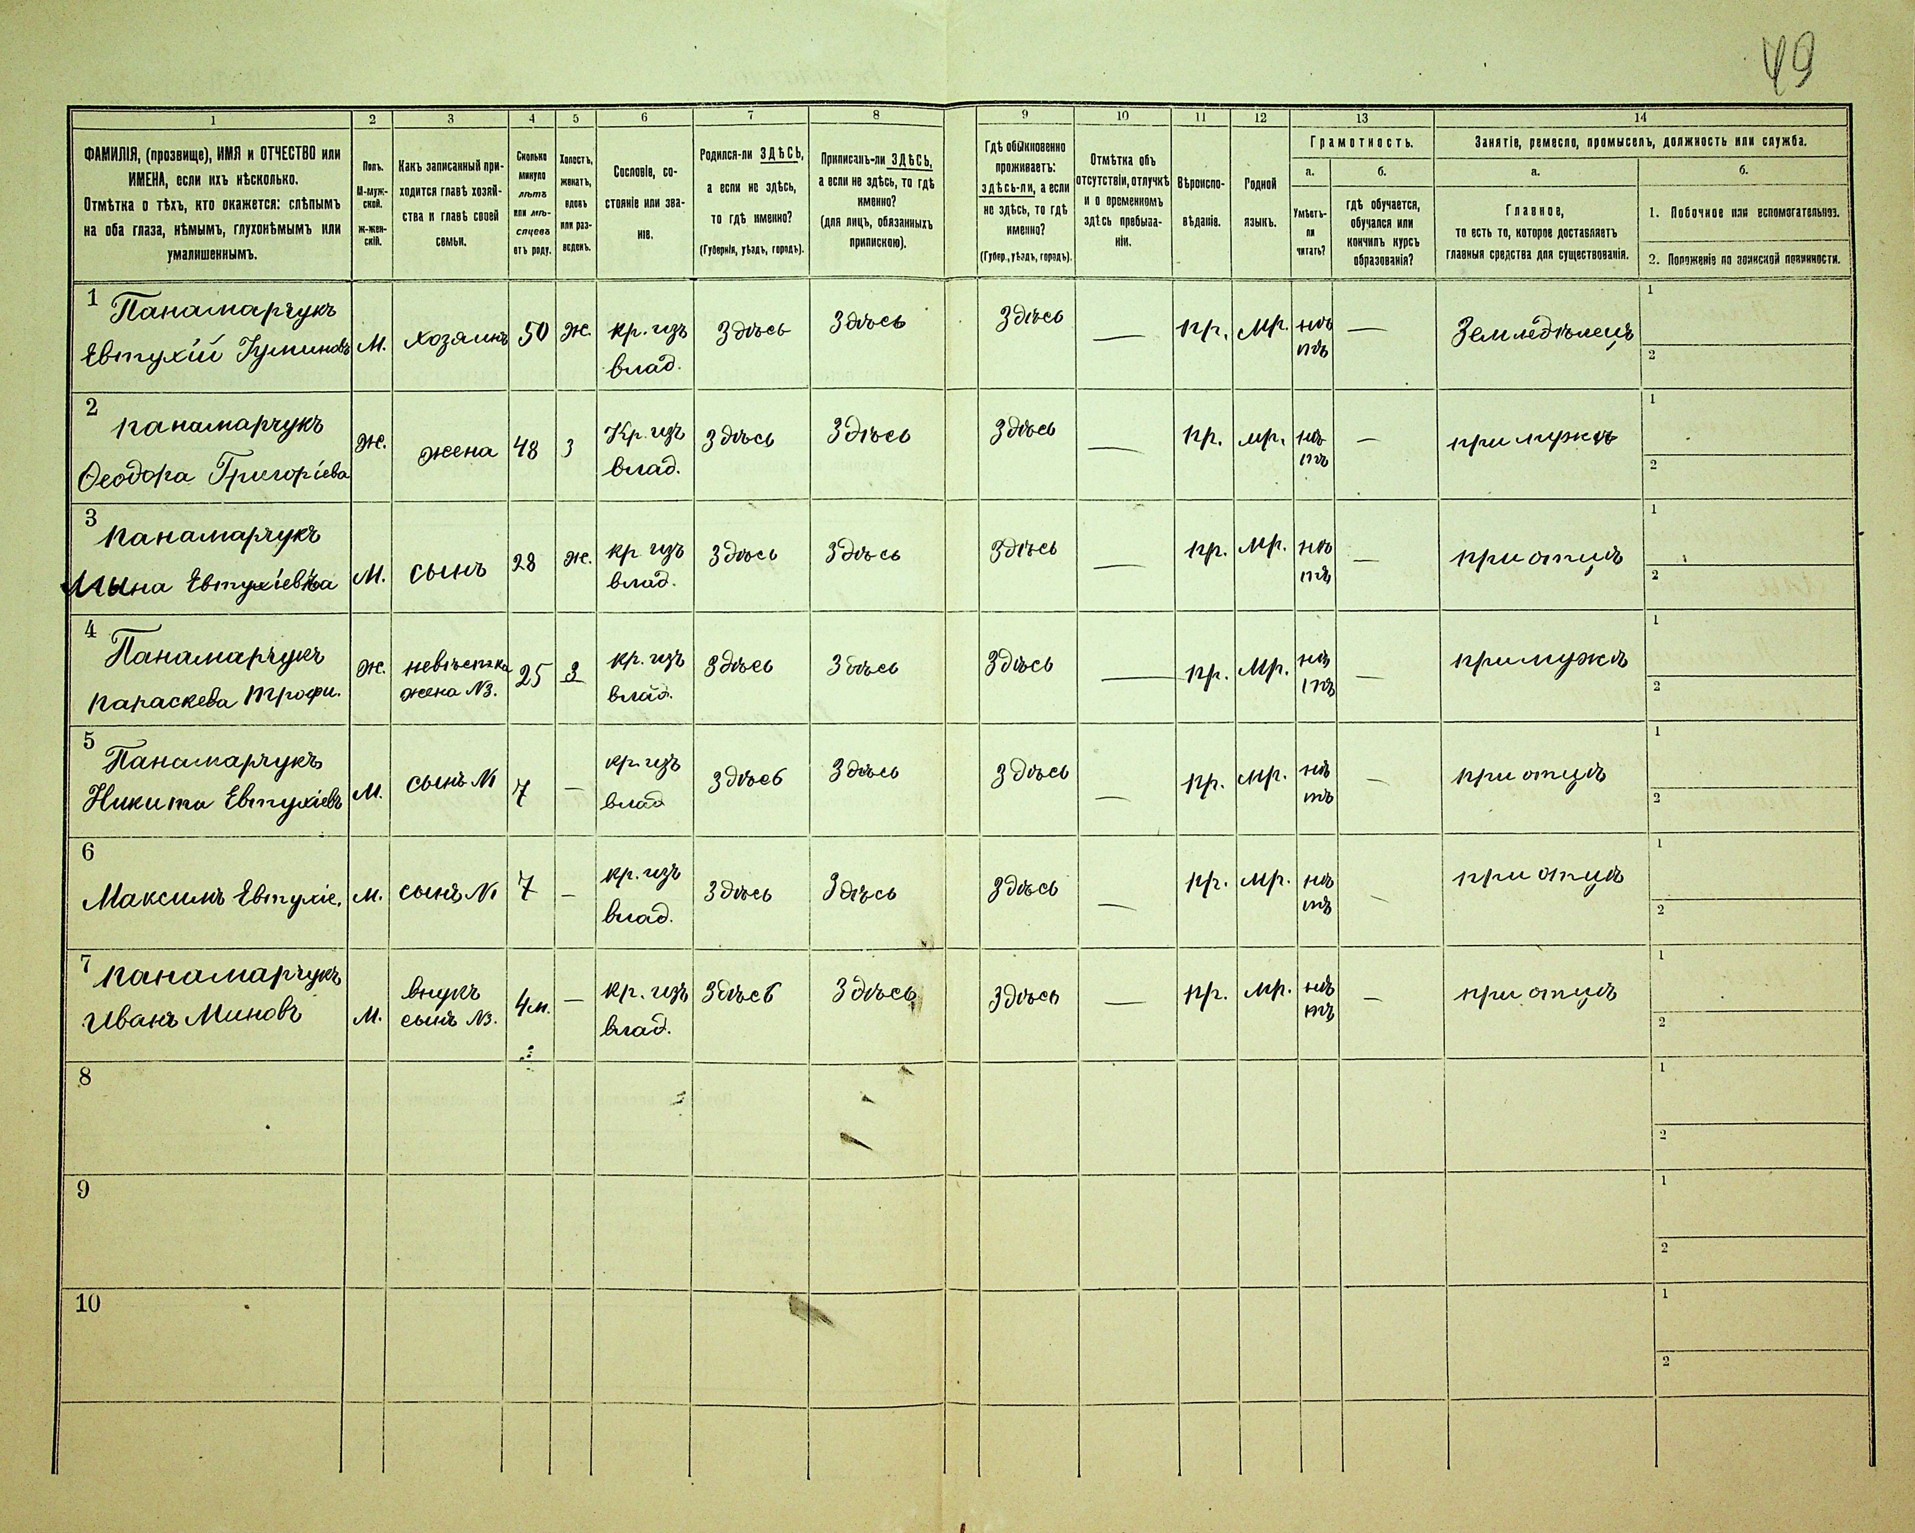 49
1 2 3 4 5 6 7 8 9 10 11 12 13 14
ФАМИЛІЯ, (прозвище), ИМЯ и ОТЧЕСТВО или
ИМЕНА, если ихъ нѣсколько.
Отмѣтка о тѣхъ, кто окажется: слѣпымъ
на оба глаза, нѣмымъ, глухонѣмымъ или
умалишеннымъ.
Полъ.
М-муж-
ской.
Ж-жен-
скій.
Какъ записанный при-
ходится главѣ хозяй-
ства и главѣ своей
семьи.
Сколько
минуло
лѣтъ
или мѣ-
сяцевъ
отъ роду.
Холостъ,
женатъ,
вдовъ
или раз-
веденъ.
Сословіе, со-
стояніе или зва-
ніе.
Родился-ли ЗДѢСЬ,
а если не здѣсь,
то гдѣ именно?
(Губернія, уѣздъ, городъ).
Приписанъ-ли ЗДѢСЬ,
а если не здѣсь, то гдѣ
именно?
(для лицъ, обязанныхъ
припискою).
Гдѣ обыкновенно
проживаетъ:
здѣсь-ли, а если
не здѣсь, то гдѣ
именно?
(Губер., уѣздъ, городъ).
Отмѣтка объ
отсутствіи, отлучкѣ
и о временномъ
здѣсь пребыва-
ніи.
Вѣроиспо-
вѣданіе.
Родной
языкъ.
Грамотность.
а.
Умѣетъ-
ли
читать?
б.
гдѣ обучается,
обучался или
кончилъ курсъ
образованія?
Занятіе, ремесло, промыселъ, должность или служба.
а.
Главное,
то есть то, которое доставляетъ
главныя средства для существованія.
б.
1. Побочное или вспомогательное.
2. Положеніе по воинской повинности.
1 Панамарчукъ
Евтухій Куминовъ М. хозяинъ 50 ж. кр. изъ влад. Здѣсь Здѣсь Здѣсь — пр. мр. нѣтъ — Земледѣлецъ 1 2
2 панамарчукъ
Ѳеодора Григоріева ж. жена 48 з Кр. изъ влад. Здѣсь Здѣсь Здѣсь — пр. мр. нѣтъ — при мужѣ 1 2
3 панамарчукъ
Мына Евтухіевъ М. сынъ 28 ж. кр изъ влад. Здѣсь Здѣсь Здѣсь — пр. мр. нѣтъ — при отцѣ 1 2
4 Панамарчукъ
параскева Трофи. ж. невѣстка жена №3. 25 з кр. изъ влад. Здѣсь Здѣсь Здѣсь — пр. мр. нѣтъ — при мужѣ 1 2
5 Панамарчукъ
Никита Евтухіевъ М. сынъ №1 7 — кр. изъ влад Здѣсь Здѣсь Здѣсь — пр. мр. нѣтъ — при отцѣ 1 2
6
Максимъ Евтухіе. м. сынъ №1 7 — кр. изъ влад. Здѣсь Здѣсь Здѣсь — пр. мр. нѣтъ — при отцѣ 1 2
7 панамарчукъ
Иванъ Миновъ М. внукъ сынъ №3. 4м. — кр. изъ влад. Здѣсь Здѣсь Здѣсь — пр. мр. нѣтъ — при отцѣ 1 2
8 1 2
9 1 2
10 1 2